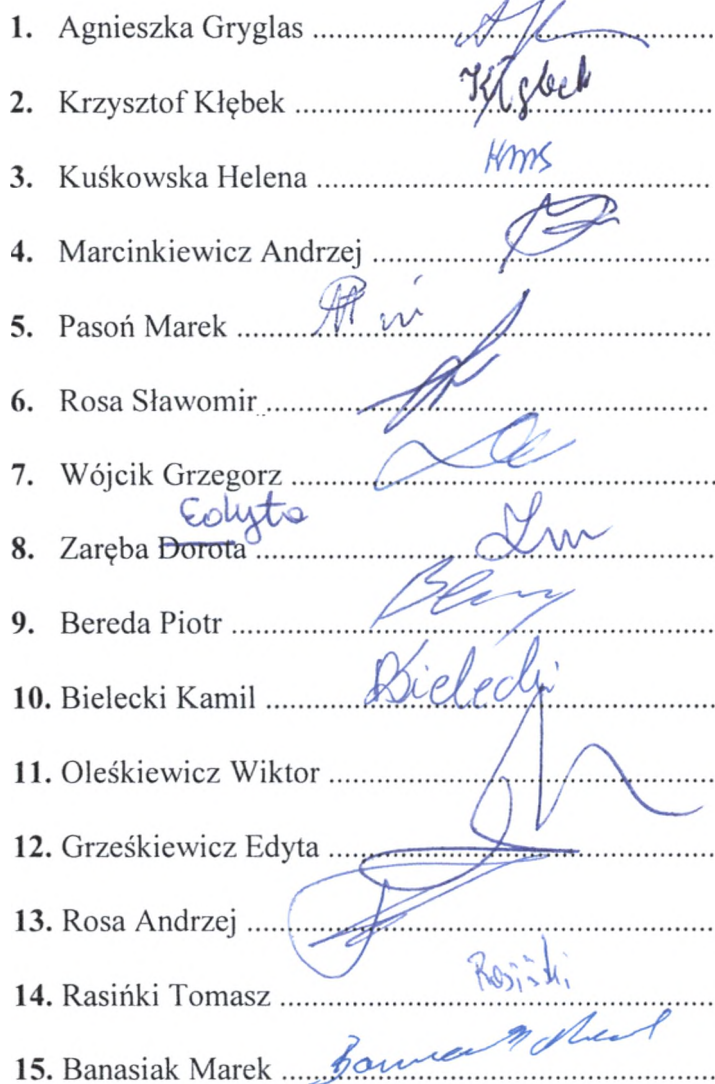 1. Agnieszka Gryglas ..........
2. Krzysztof Kłębek .......... Kłębek
3. Kuśkowska Helena ..........
4. Marcinkiewicz Andrzej ..........
5. Pasoń Marek ..........
6. Rosa Sławomir ..........
7. Wójcik Grzegorz ..........
Edyta
8. Zaręba Dorota ..........
9. Bereda Piotr ..........
10. Bielecki Kamil .......... Bielecki
11. Oleśkiewicz Wiktor ..........
12. Grześkiewicz Edyta ..........
13. Rosa Andrzej ..........
14. Rasińki Tomasz .......... Rasiński
15. Banasiak Marek ..........